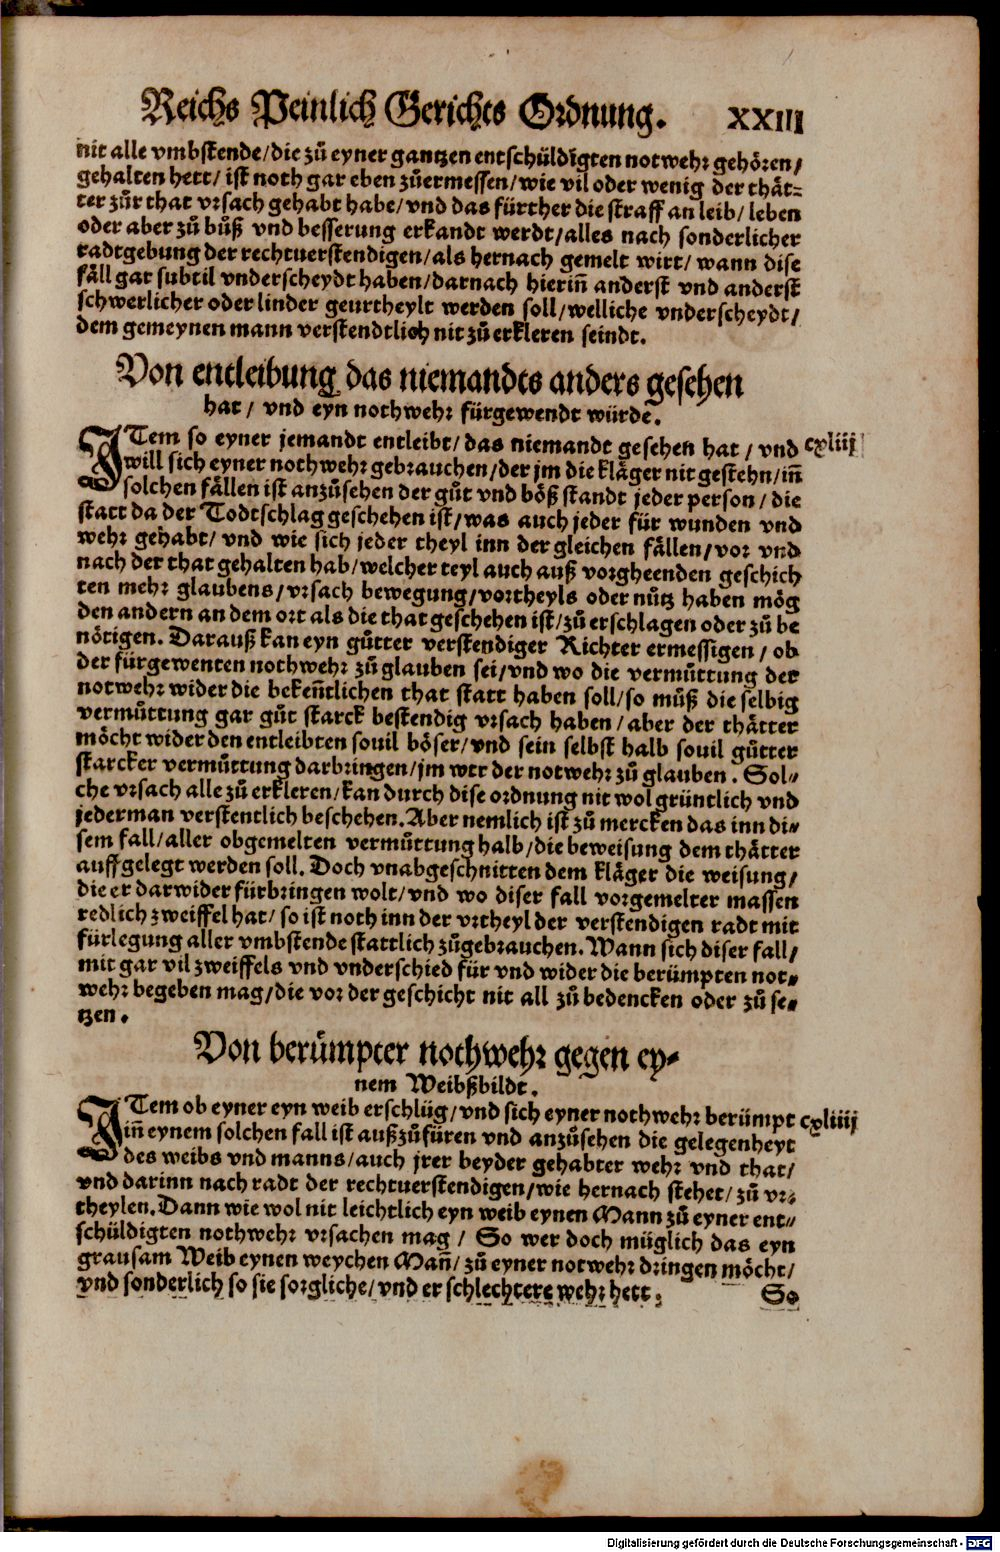 Reichs Peinlich Gerichts Ordnung. XXIII
nit alle vmbstende/die zů eyner gantzen entschüldigten notwehr gehören/
gehalten hett/ ist noth gar eben zůermessen/wie vil oder wenig der thät-
ter zůr that vrsach gehabt habe/vnd das fürther die straff an leib/ leben
oder aber zů bůß vnd besserung erkandt werdt/alles nach sonderlicher
radtgebung der rechtuerstendigen/als hernach gemelt wirt/ wann dise
fäll gar subtil vnderscheydt haben/darnach hierin̄ anderst vnd anderst
schwerlicher oder linder geurtheylt werden soll/welliche vnderscheydt/
dem gemeynen mann verstendtlich nit zů erkleren seindt.
Von entleibung das niemandts anders gesehen
hat/ vnd eyn nothwehr fürgewendt würde.
ITem so eyner jemandt entleibt/das niemandt gesehen hat/vnd cxliij
will sich eyner nothwehr gebrauchen/der jm die kläger nit gestehn/in̄
solchen fällen ist anzůsehen der gůt vnd böß standt jeder person/ die
statt da der Todtschlag geschehen ist/was auch jeder für wunden vnd
wehr gehabt/ vnd wie sich jeder theyl inn der gleichen fällen/vor vnd
nach der that gehalten hab/welcher teyl auch auß vorgheenden geschich
ten mehr glaubens/vrsach bewegung/vortheyls oder nůtz haben mög
den andern an dem ort als die that geschehen ist/zů erschlagen oder zů be
nötigen. Darauß kan eyn gůtter verstendiger Richter ermessigen/ ob
der fürgewenten nothwehr zů glauben sei/vnd wo die vermůttung der
notwehr wider die beken̄tlichen that statt haben soll/so můß die selbig
vermůttung gar gůt starck bestendig vrsach haben/aber der thätter
möcht wider den entleibten souil böser/vnd sein selbst halb souil gůtter
starcker vermůttung darbringen/jm wer der notwehr zů glauben. Sol-
che vrsach alle zů erkleren/kan durch dise ordnung nit wol grüntlich vnd
jederman verstentlich beschehen. Aber nemlich ist zů mercken das inn di-
sem fall/aller obgemelten vermůttung halb/die beweisung dem thätter
auffgelegt werden soll. Doch vnabgeschnitten dem kläger die weisung/
die er darwider fürbringen wolt/vnd wo diser fall vorgemelter massen
redlich zweiffel hat/ so ist noth inn der vrtheyl der verstendigen radt mit
fürlegung aller vmbstende stattlich zůgebrauchen. Wann sich diser fall/
mit gar vil zweiffels vnd vnderschied für vnd wider die berümpten not-
wehr begeben mag/die vor der geschicht nit all zů bedencken oder zů se-
tzen.
Von berůmpter nothwehr gegen ey-
nem Weibßbildt.
ITem ob eyner eyn weib erschlüg/vnd sich eyner nothwehr berümpt cxliiij
in̄ eynem solchen fall ist außzůfüren vnd anzůsehen die gelegenheyt
des weibs vnd manns/auch jrer beyder gehabter wehr vnd that/
vnd darinn nach radt der rechtuerstendigen/wie hernach stehet/ zů vr-
theylen. Dann wie wol nit leichtlich eyn weib eynen Mann zů eyner ent-
schüldigten nothwehr vrsachen mag/ So wer doch müglich das eyn
grausam Weib eynen weychen Man̄/ zů eyner notwehr dringen möcht/
vnd sonderlich so sie sorgliche/vnd er schlechtere wehr hett. So
Digitalisierung gefördert durch die Deutsche Forschungsgemeinschaft - DFG